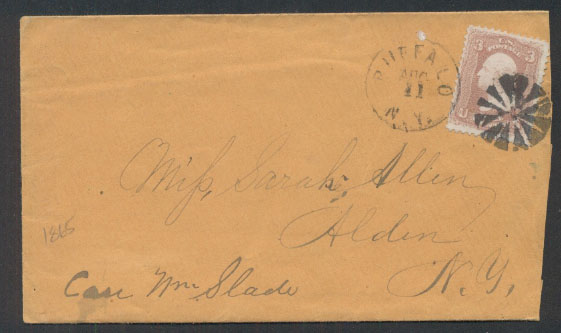 BUFFALO
AUG
11
N.Y.
3 U.S. 3
POSTAGE
Miss, Sarah, Allen
Alden
N.Y.
Care Wm Slade
1865